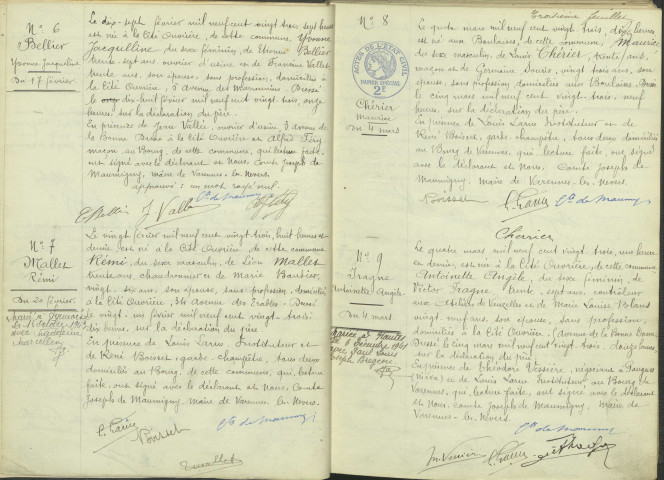 N° 6
Bellier
Yvonne Jacqueline
Du 17 février
Le dix-sept février mil neuf cent vingt trois, sept heures
est née à la Cité Ouvrière, de cette commune, Yvonne
Jacqueline, du sexe féminin, de Bellier
trente sept ans ouvrier d'usine et de Francine Vallet
trente ans, son épouse, sans profession, domiciliés à
la Cité Ouvrière, 5 avenue des Marronniers. Dressé
le dix-huit février mil neuf cent vingt trois, onze
heures, sur la déclaration du père.
En présence de Jean Vallée, ouvrier d'usine 3 avenue de
la Bonne Dame à la Cité Ouvrière et Alfred
maçon au Bourg, de cette commune, qui, lecture faite,
ont signé avec le déclarant et Nous, Comte Joseph de
Maumigny, maire de Varennes-les-Nevers.
approuvé : un mot rayé nul
Cte de Maumigny
N° 7
Mallet
Rémi
Du 20 février
Le vingt février mil neuf cent vingt trois, huit heures et
demie est né à la Cité Ouvrière, de cette commune
Rémi, du sexe masculin, de Léon Mallet
trente ans, chaudronnier et de Marie Bautier,
vingt six ans, son épouse, sans profession, domiciliés
à la Cité Ouvrière, 34 avenue des Erables. Dressé
le vingt un février mil neuf cent vingt trois
dix heures, sur la déclaration du père
En présence de Louis Larue Instituteur et
de René Boisset, garde-champêtre, tous deux
domiciliés au Bourg, de cette commune, qui, lecture
faite, ont signé avec le déclarant et Nous, Comte
Joseph de Maumigny, maire de Varennes-les-Nevers.
L. Larue
Boisset
Cte de Maumigny
Troisième feuillet
N° 8
ACTES DE L'ETAT CIVIL
PAPIER SPECIAL
2F
Chérier
Maurice
Du 4 mars
Le quatre mars mil neuf cent vingt trois, dix heures
est né aux Boulaises, de cette commune, Maurice
du sexe masculin, de Louis Chérier, trente ans,
maçon et de Germaine, vingt trois ans, son
épouse sans profession domiciliés aux Boulaises. Dressé
le cinq mars mil neuf cent vingt-trois, neuf
heures, sur la déclaration du père.
En présence de Louis Larue Instituteur et de
René Boisset, garde-champêtre, tous deux domiciliés
au Bourg de Varennes, qui, lecture faite, ont signé
avec le déclarant et Nous, Comte Joseph de
Maumigny, maire de Varennes-les-Nevers.
Boisset L. Larue Cte de Maumigny
Cherier
N° 9
Fragne
Antoinette Angèle
Du 4 mars
Le quatre mars mil neuf cent vingt trois, une heure
et demie, est née à la Cité Ouvrière, de cette commune,
Antoinette Angèle, du sexe féminin, de
Victor Fragne, trente sept ans, contrôleur
aux Ateliers de Vauzelles et de Marie Louise
vingt neuf ans, son épouse, sans profession,
domiciliés à la Cité Ouvrière, (avenue de la Bonne Dame.
Dressé le cinq mars mil neuf cent vingt trois, douze heures
sur la déclaration du père
En présence de Théodore Vessière, négociant à Fougues
(Nièvre) et de Louis Larue Instituteur, au Bourg de
Varennes, qui, lecture faite, ont signé avec le déclarant
et Nous, Comte Joseph de Maumigny, maire de
Varennes-les-Nevers.
Cte de Maumigny
L. Larue